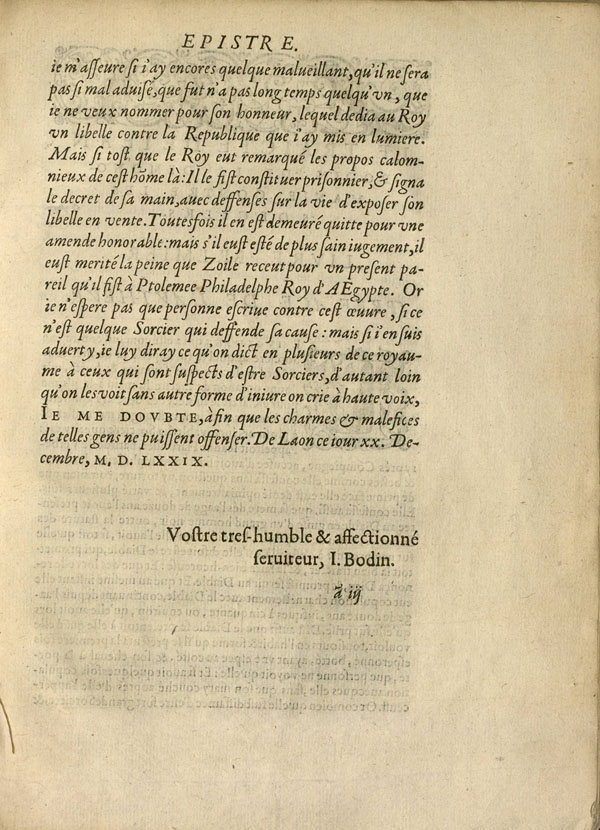 EPISTRE.
ie m'aſſeure ſi i'ay encores quelque malueillant, qu'il ne ſera
pas ſi mal aduiſé, que fut n'a pas long temps quelqu'vn, que
ie ne veux nommer pour ſon honneur, lequel dedia au Roy
vn libelle contre la Republique que i'ay mis en lumiere.
Mais ſi toſt que le Roy eut remarqué les propos calom-
nieux de ceſt hõme là: Il le fiſt conſtituer priſonnier, & ſigna
le decret de ſa main, auec deffenſes ſur la vie d'expoſer ſon
libelle en vente. Toutesfois il en eſt demeuré quitte pour vne
amende honorable: mais s'il euſt eſté de plus ſain iugement, il
euſt merité la peine que Zoile receut pour vn preſent pa-
reil qu'il fiſt à Ptolemee Philadelphe Roy d'AEgypte. Or
ie n'eſpere pas que perſonne eſcriue contre ceſt œuure, ſi ce
n'eſt quelque Sorcier qui deffende ſa cauſe: mais ſi i'en ſuis
aduerty, ie luy diray ce qu'on dict en pluſieurs de ce royau-
me à ceux qui ſont ſuſpects d'eſtre Sorciers, d'autant loin
qu'on les voit ſans autre forme d'iniure on crie à haute voix,
IE ME DOVBTE, à fin que les charmes & malefices
de telles gens ne puiſſent offenſer. De Laon ce iour xx. De-
cembre, M. D. LXXIX.
Voſtre treſ-humble & affectionné
ſeruiteur, I. Bodin.
ã iij